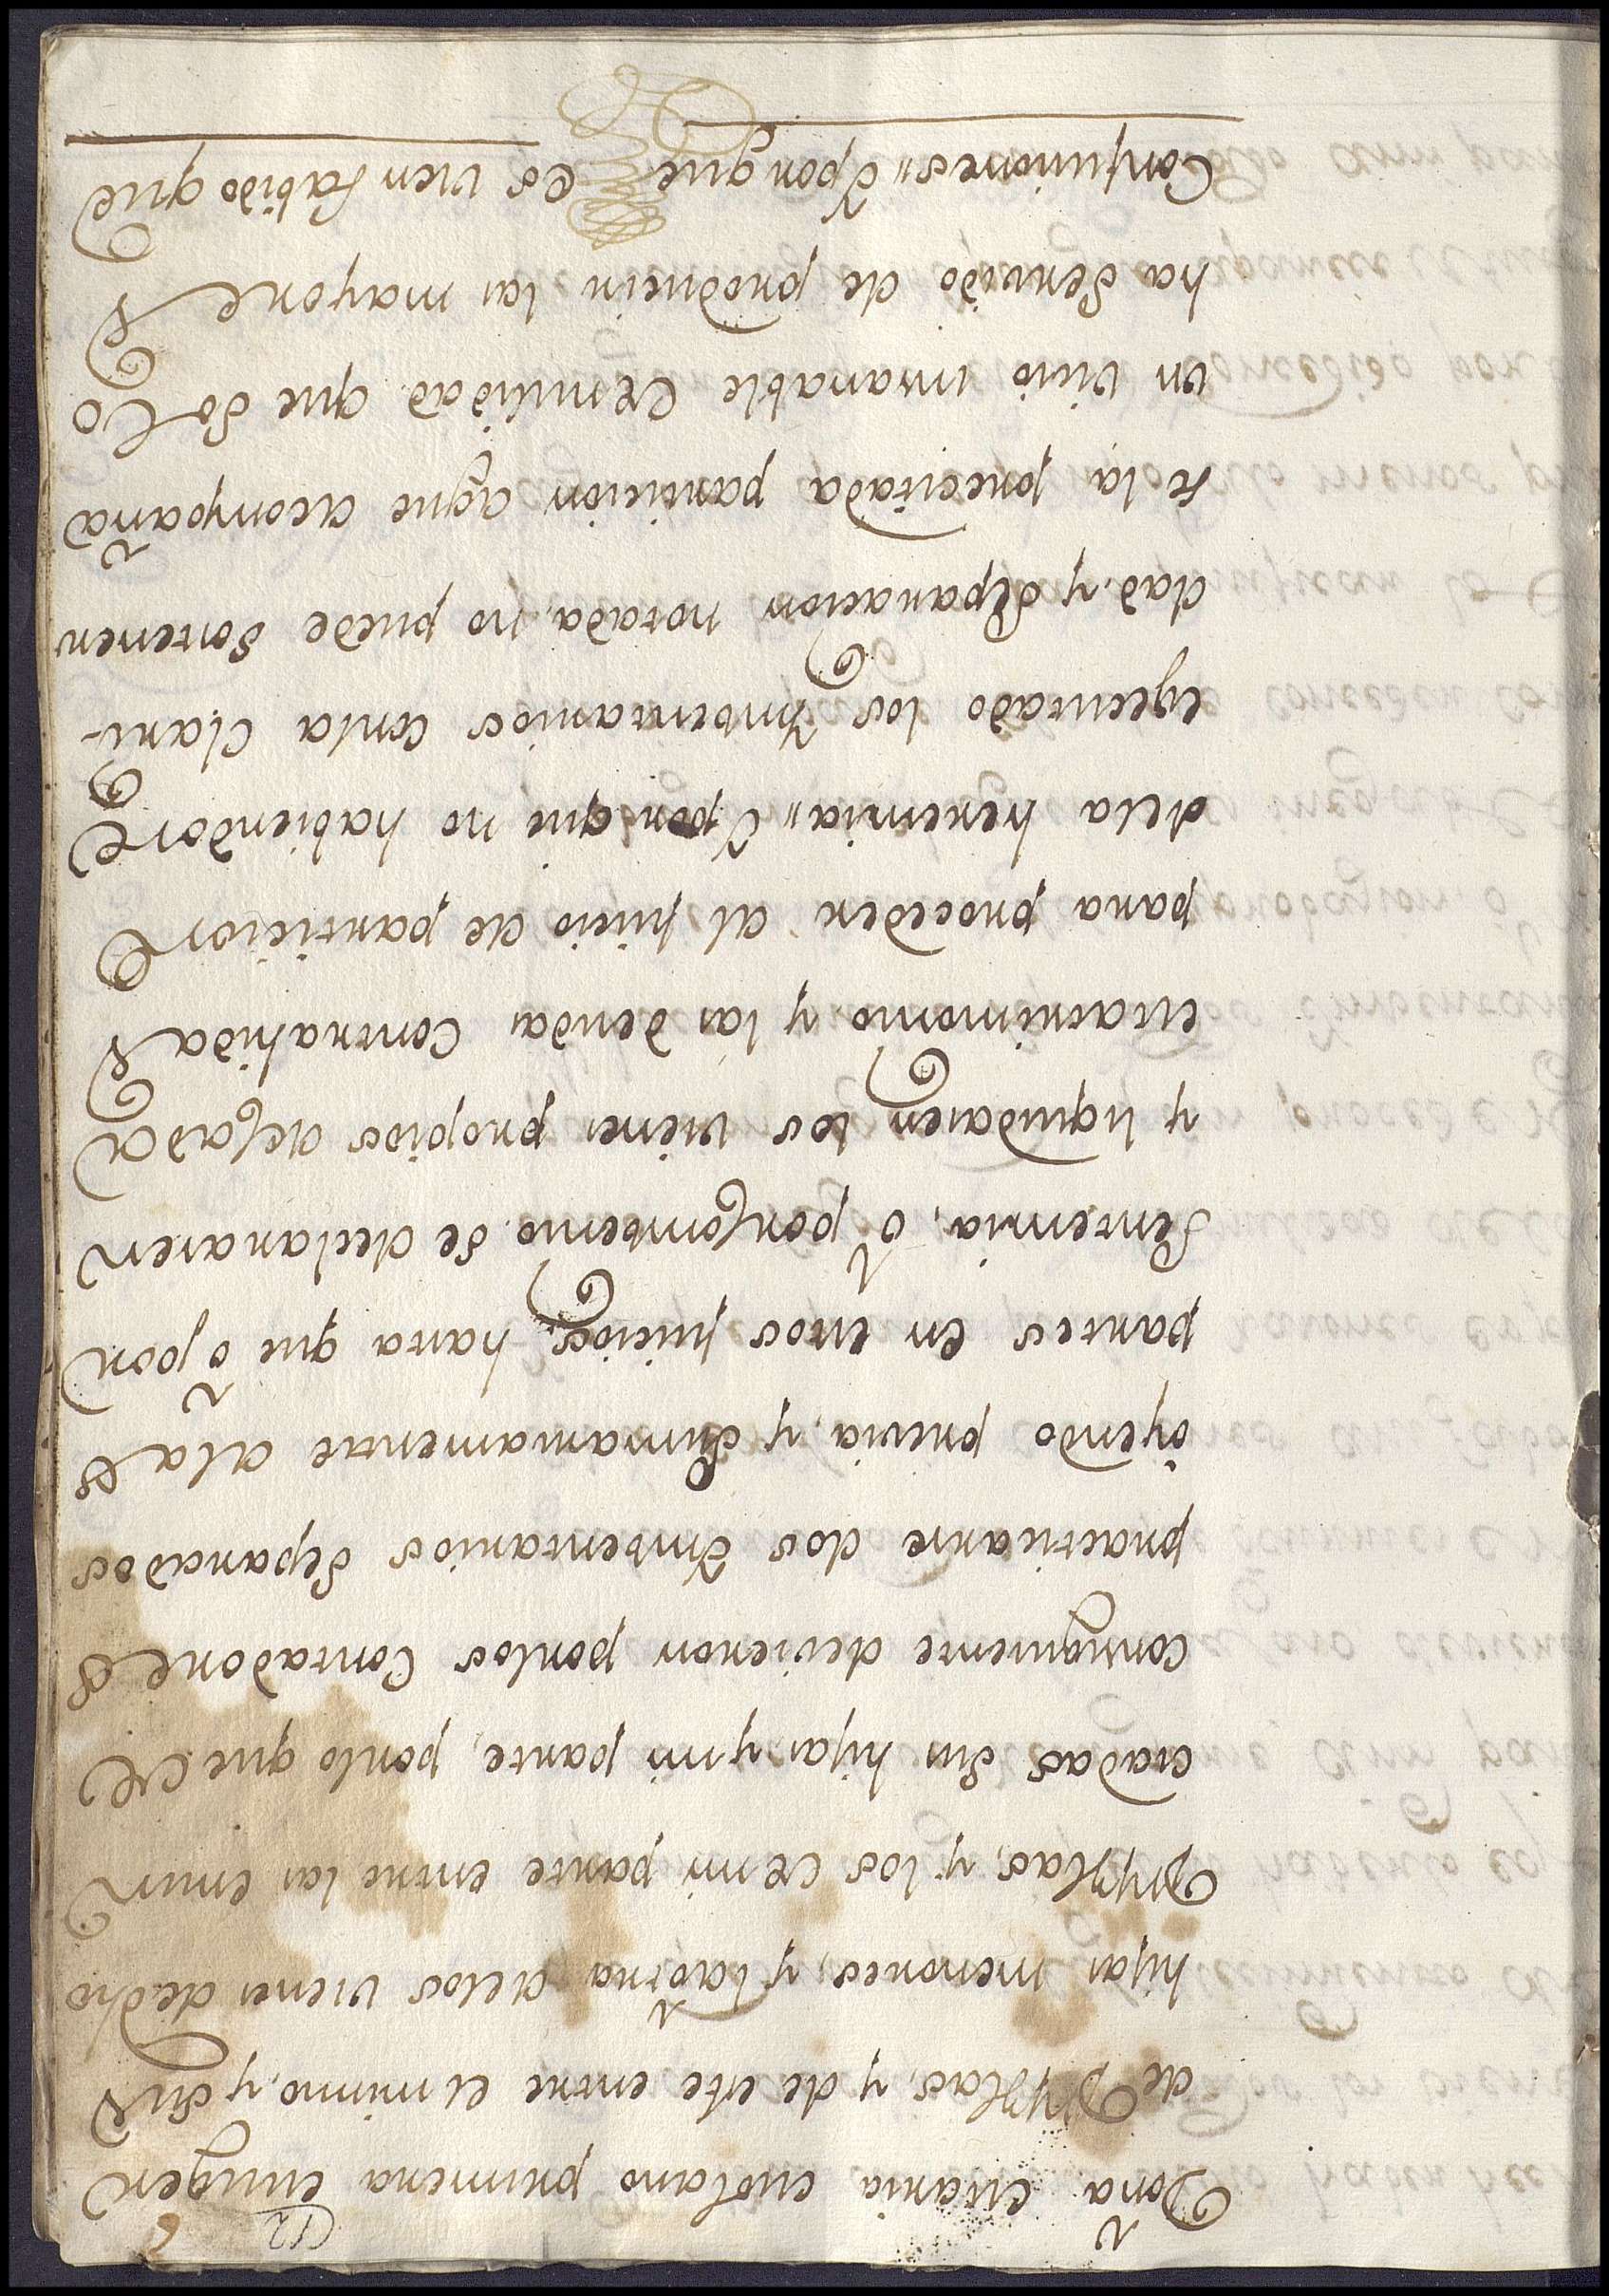 12
Doña Maria Molano primera Muger
de Dn Blas, y de este entre el mismo, y sus
hijas menores, y la otra delos vienes de dho
Dn Blas, y los de mi parte entre las enun
ciadas sus hijas y mi parte, porlo que de
consiguiente devieron porlos Contadores
practicarse dos Imbentarios separados
oyendo previa, y sumariamente alas
partes en estos juicios, hasta que o por
Sentencia, o por combenio se declarasen
y liquidasen los vienes propios decada
Matrimonio y las deudas contrahidas
para proceder al juicio de particion
dela herencia" Y porque no habiendose
egecutado los Imbentarios conla clari-
dad, y separacion notada, no puede sostener
se la precitada particion aque acompaña
un vicio insanable de nulidad que solo
ha servido de producir las mayores
Confusiones" Y porque es vien sabido que